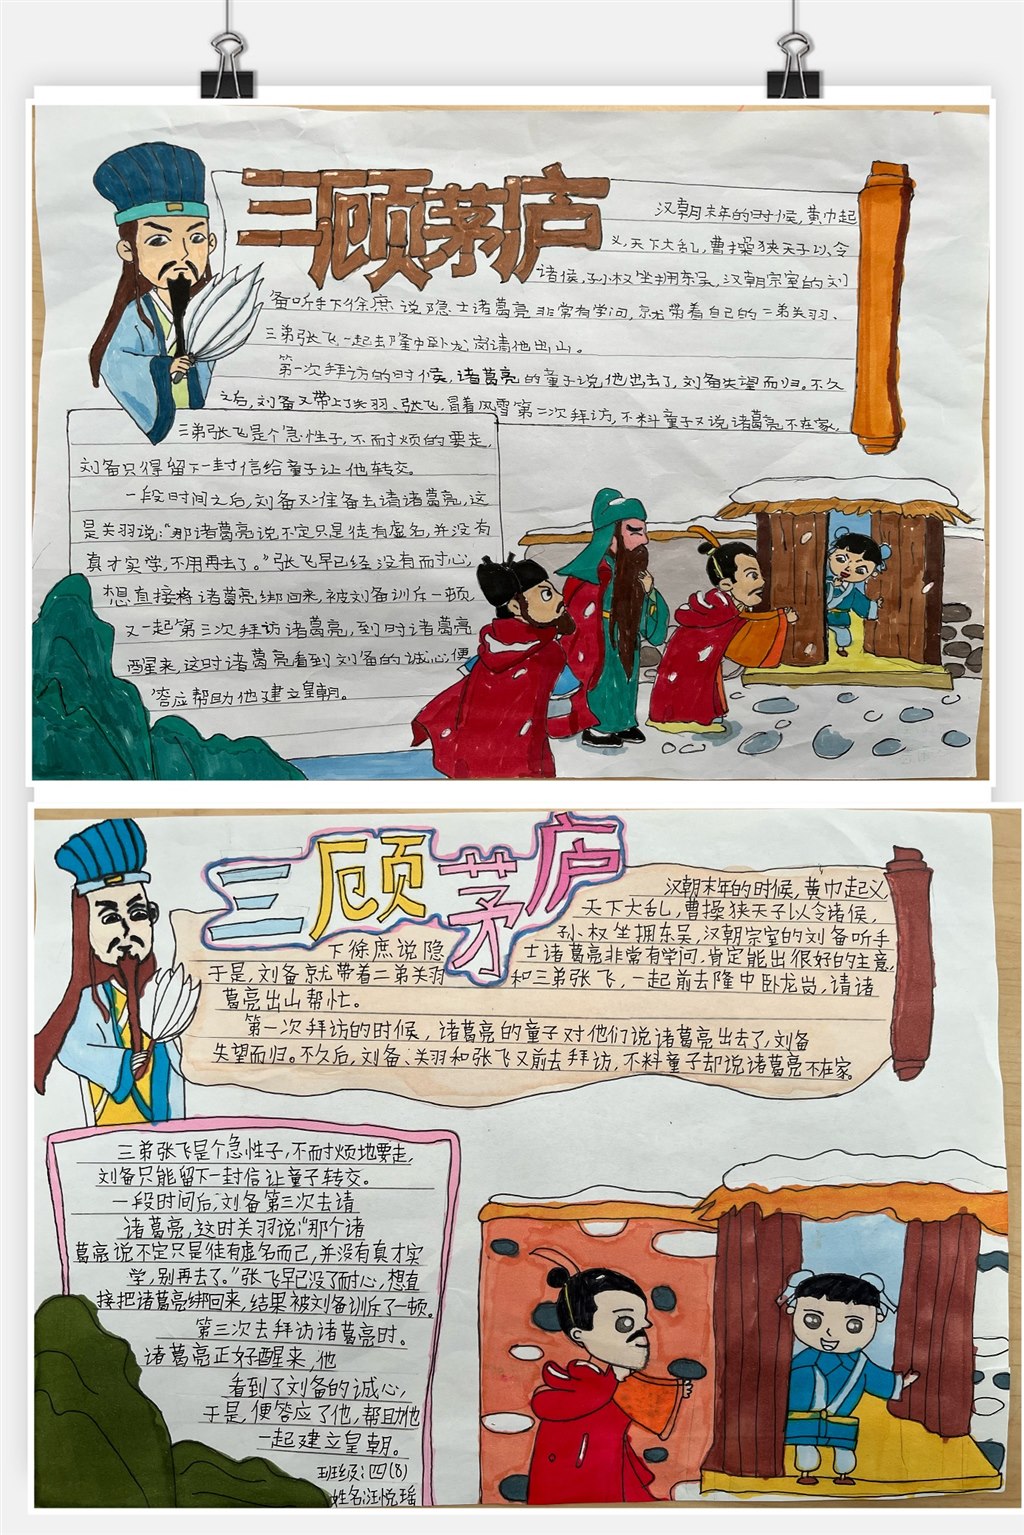 三顾茅庐
汉朝末年的时候,黄巾起
义,天下大乱,曹操狭天子以令
诸侯,孙权坐拥东吴,汉朝宗室的刘
备听手下徐庶说隐士诸葛亮非常有学问,就带着自己的二弟关羽、
三弟张飞一起去隆中卧龙岗请他出山。
第一次拜访的时候,诸葛亮的童子说他出去了,刘备失望而归。不久
之后,刘备又带上了关羽、张飞,冒着风雪第二次拜访,不料童子又说诸葛亮不在家,
三弟张飞是个急性子,不耐烦的要走,
刘备只得留下一封信给童子让他转交。
一段时间之后,刘备又准备去请诸葛亮,这
是关羽说:“那诸葛亮说不定只是徒有虚名,并没有
真才实学,不用再去了。”张飞早已经没有耐心,
想直接将诸葛亮绑回来,被刘备训斥一顿,
又一起第三次拜访诸葛亮,到时诸葛亮
醒来,这时诸葛亮看到刘备的诚心,便
答应帮助他建立皇朝。
三顾茅庐
汉朝末年的时候,黄巾起义,
天下大乱,曹操狭天子以令诸侯,
孙权坐拥东吴,汉朝宗室的刘备听手
下徐庶说隐士诸葛亮非常有学问,肯定能出很好的主意,
于是,刘备就带着二弟关羽和三弟张飞,一起前去隆中卧龙岗,请诸
葛亮出山帮忙。
第一次拜访的时候,诸葛亮的童子对他们说诸葛亮出去了,刘备
失望而归。不久后,刘备、关羽和张飞又前去拜访,不料童子却说诸葛亮不在家。
三弟张飞是个急性子,不耐烦地要走,
刘备只能留下一封信让童子转交。
一段时间后,刘备第三次去请
诸葛亮,这时关羽说:“那个诸
葛亮说不定只是徒有虚名而已,并没有真才实
学,别再去了。”张飞早已没了耐心,想直
接把诸葛亮绑回来,结果被刘备训斥了一顿。
第三次去拜访诸葛亮时。
诸葛亮正好醒来,他
看到了刘备的诚心,
于是,便答应了他,帮助他
一起建立皇朝。
班级:四(8)
姓名:汪悦瑶